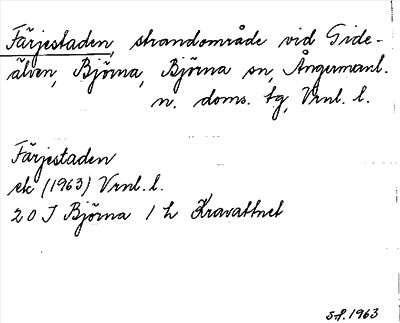 Färjestaden, strandområde vid Gide-
älven, Björna, Björna sn, Ångermanl.
n. doms. tg, Vrnl. l.
Färjestaden
ek (1963) Vrnl. l.
20 J Björna 1 h Kravattnet
1963